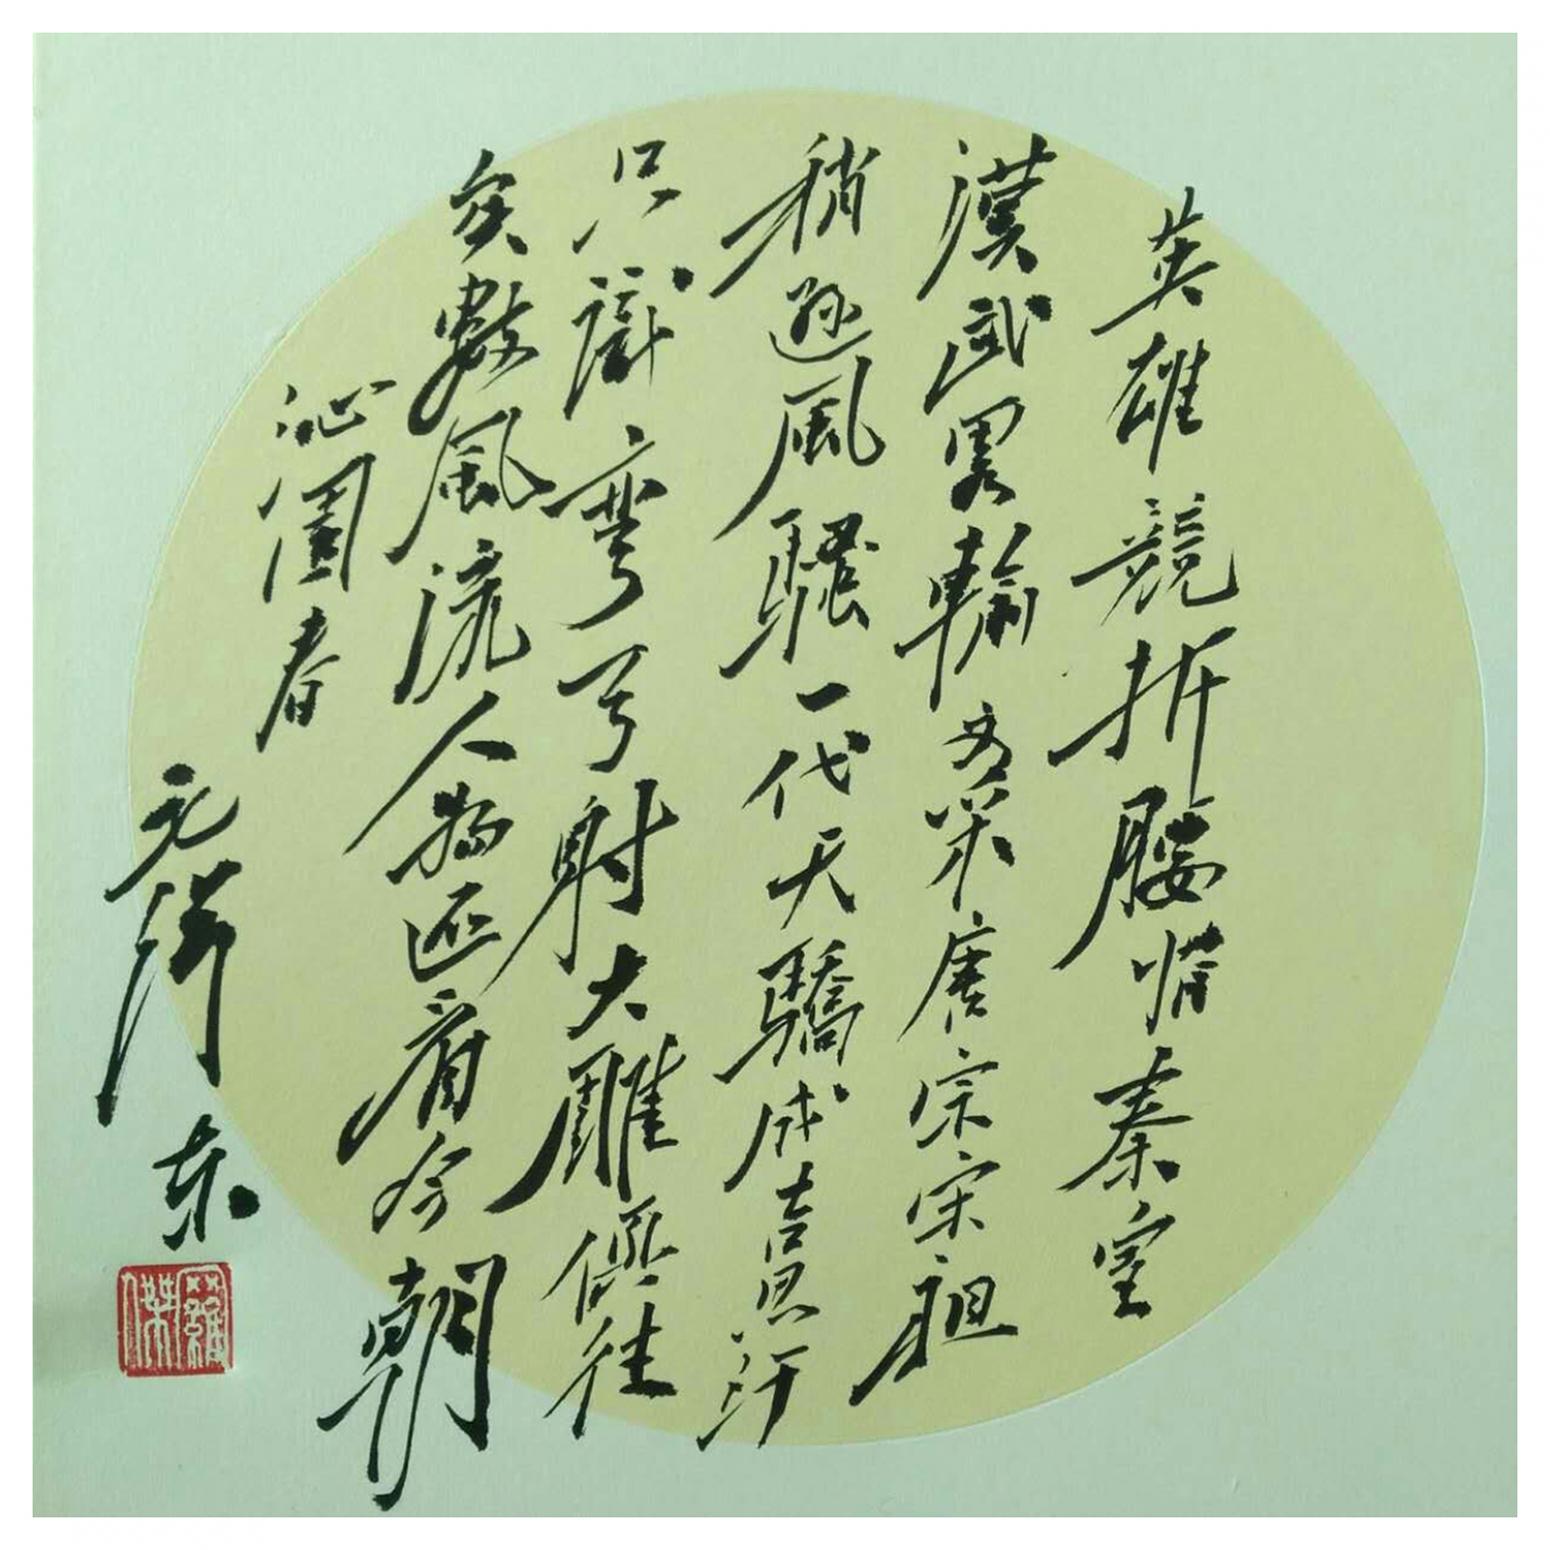 英雄競折腰惜秦皇
漢武畧輸文采唐宗宋祖
稍遜風騷一代天驕成吉思汗
只識彎弓射大雕俱往
矣數風流人物还看今朝
沁園春
毛泽东
羅傑